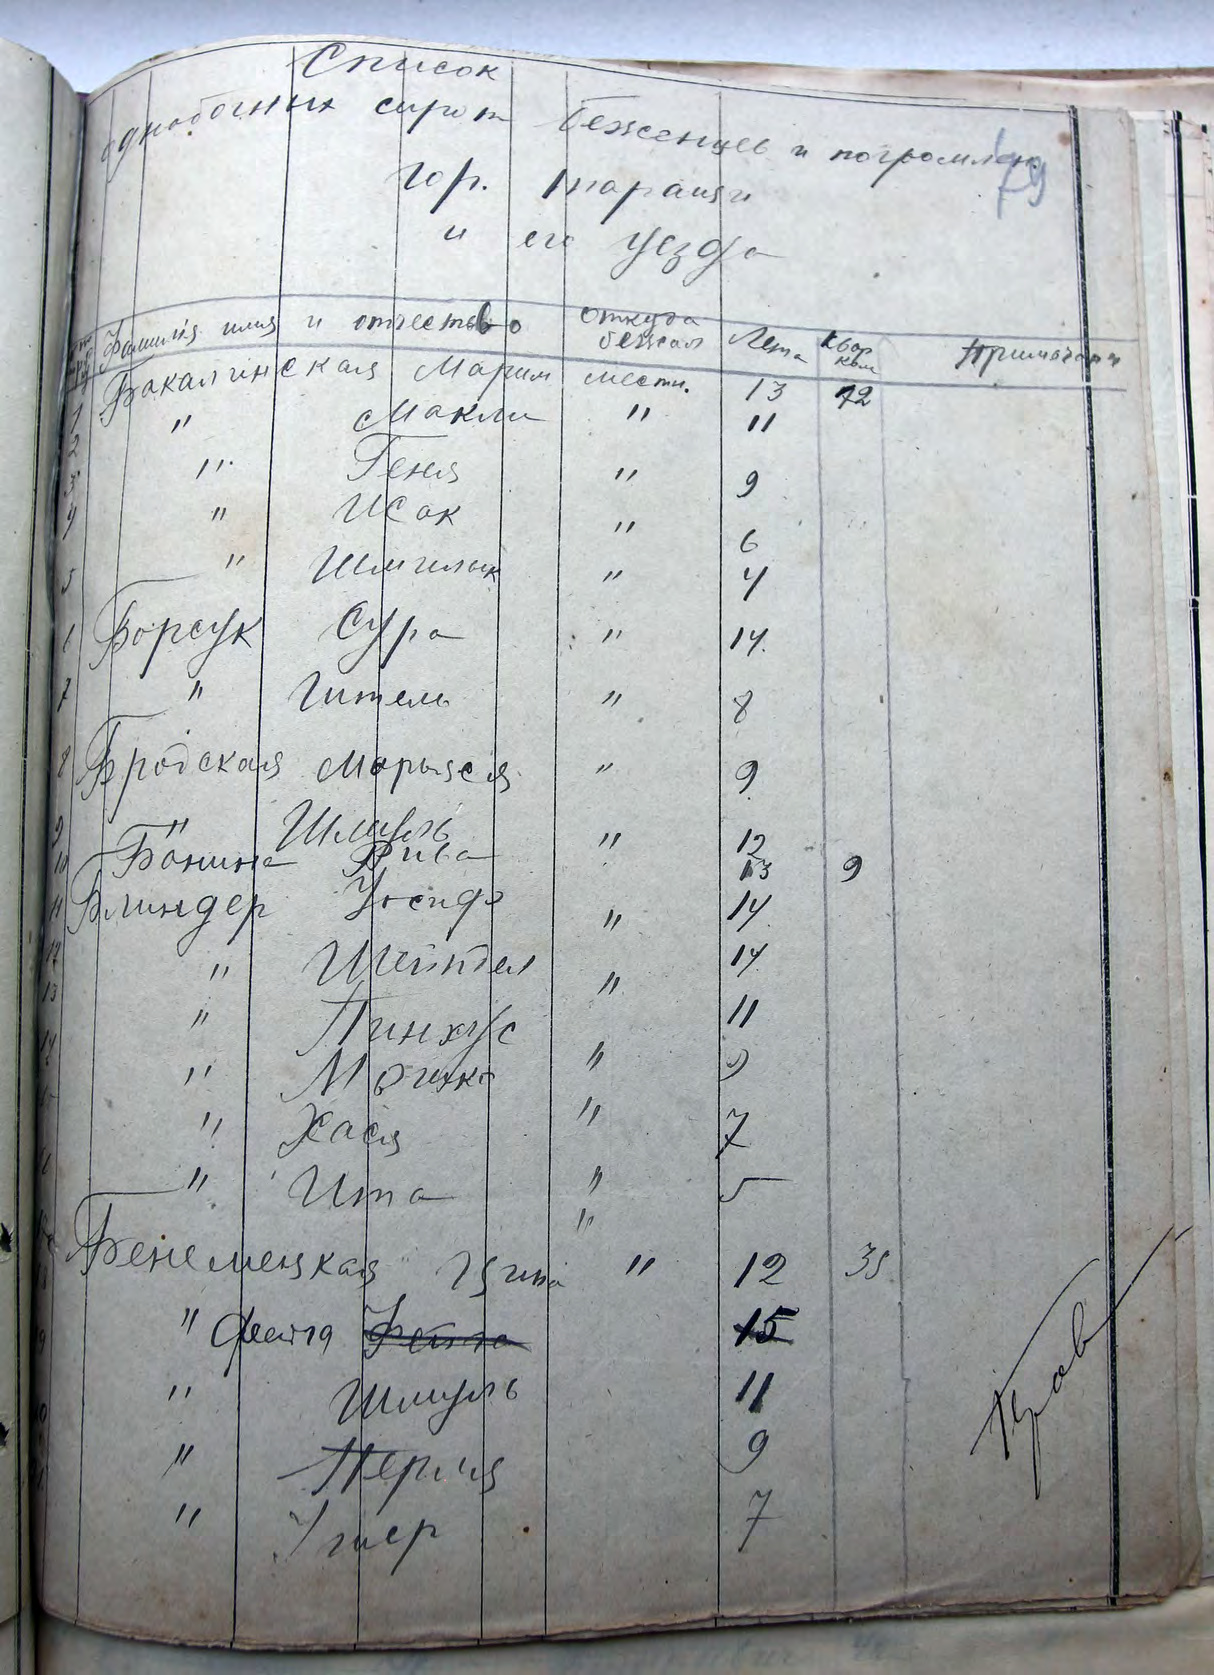 Список
однобочных сирот беженцев и погромлен.
79
гор. Таращи
и его уезда
Фамилия имя и отчество откуда бежал Лета Примечан
1 Бакалинская Марим местн. 13 12
2 " Макли " 11
3 " Геня " 9
4 " Исак " 6
5 " Шмилык " 4
6 Борсук Сура " 14.
7 " Гителъ " 8
8 Бродская Марьяся " 9
9 " Шмуль " 12
10 Бонина Рива 13 9
11 Блиндер Иосиф " 14
12 " Шейндел " 14
13 " Пинхус " 11
14 " Мошко " 9
15 " Хася " 7
" Ита " 5
"
Бенемецкая " 12 35
" Фейга Фейга 15
" Шмуль 11
" Перля 9
" Ушер 7